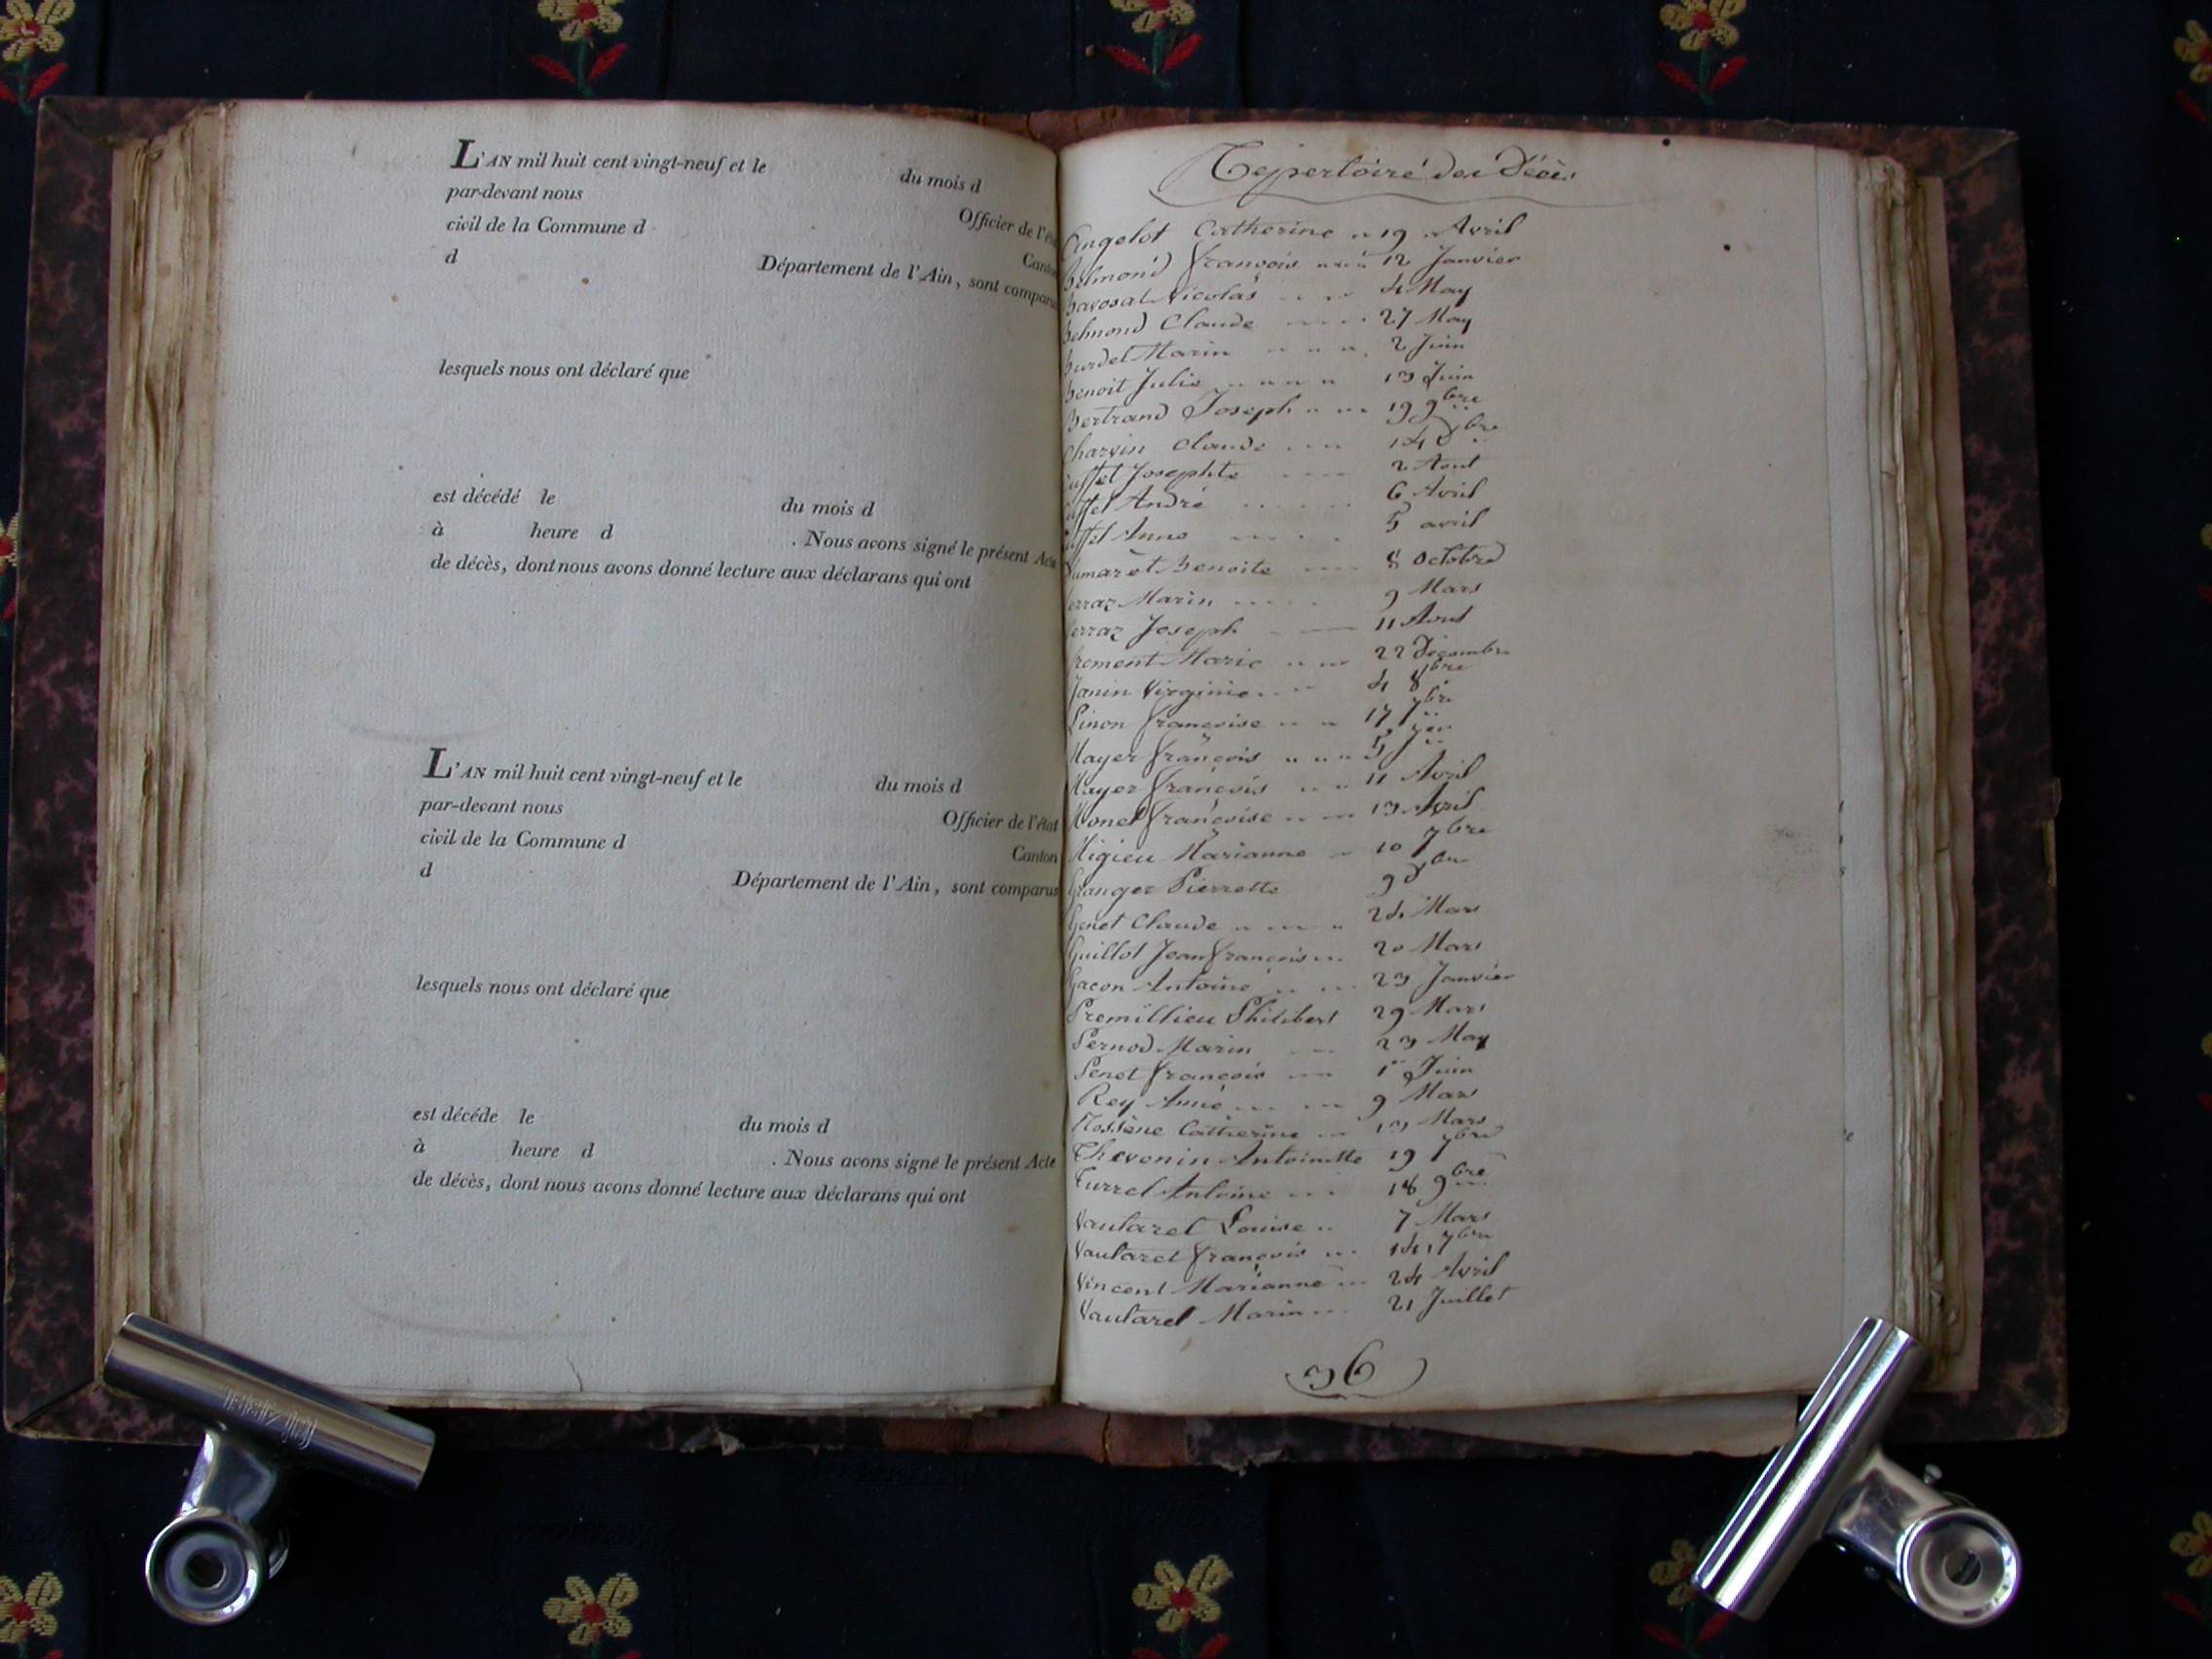 L'AN mil huit cent vingt-neuf et le du mois d
par-devant nous Officier de l'état
civil de la Commune d Canton
d Département de l'Ain, sont comparus
lesquels nous ont déclaré que
est décédé le du mois d
à heure d . Nous avons signé le présent Acte
de décès, dont nous avons donné lecture aux déclarans qui ont
L'AN mil huit cent vingt-neuf et le du mois d
par-devant nous Officier de l'état
civil de la Commune d Canton
d Département de l'Ain, sont comparus
lesquels nous ont déclaré que
est décéde le du mois d
à heure d . Nous avons signé le présent Acte
de décès, dont nous avons donné lecture aux déclarans qui ont
Repertoire des Décès
Angelot Catherine 19 Avril
Belmond françois 12 Janvier
Bavosat Nicolas 4 May
Belmond Claude 27 May
Burdet Marin 2 Juin
Benoit Julie 13 Juin
Bertrand Joseph 19 9bre
Charvin Claude 14
Cuffet Josephte 2 Aout
Cuffet André 6 Avril
Cuffet Anne 5 avril
Dumarêt Benoite 8 Octobre
ferraz Marin 9 Mars
ferraz Joseph 11 Aout
frement Marie 22 Décembre
Janin Virginie 4 8bre
Linon françoise 17 7bre
Mayer françois 5
Mayer françois 11 Avril
Monet françoise 13 Avril
Migieu Marianne 10 7bre
Granger Pierrette 9
Genet Claude 24 Mars
Guillot Jean françois 20 Mars
Gacon Antoine 23 Janvier
Premillieu Philibert 29 Mars
Pernod Marin 23 May
Penet françois 1er Juin
Rey Anne 9 Mars
Catherine 13 Mars
Thevenin Antoinette 19 7bre
Turrel Antoine 18 9bre
Vautaret Louise 7 Mars
Vautaret françois 14 7bre
Vincent Marianne 24 Avril
Vautaret Marin 21 Juillet
36